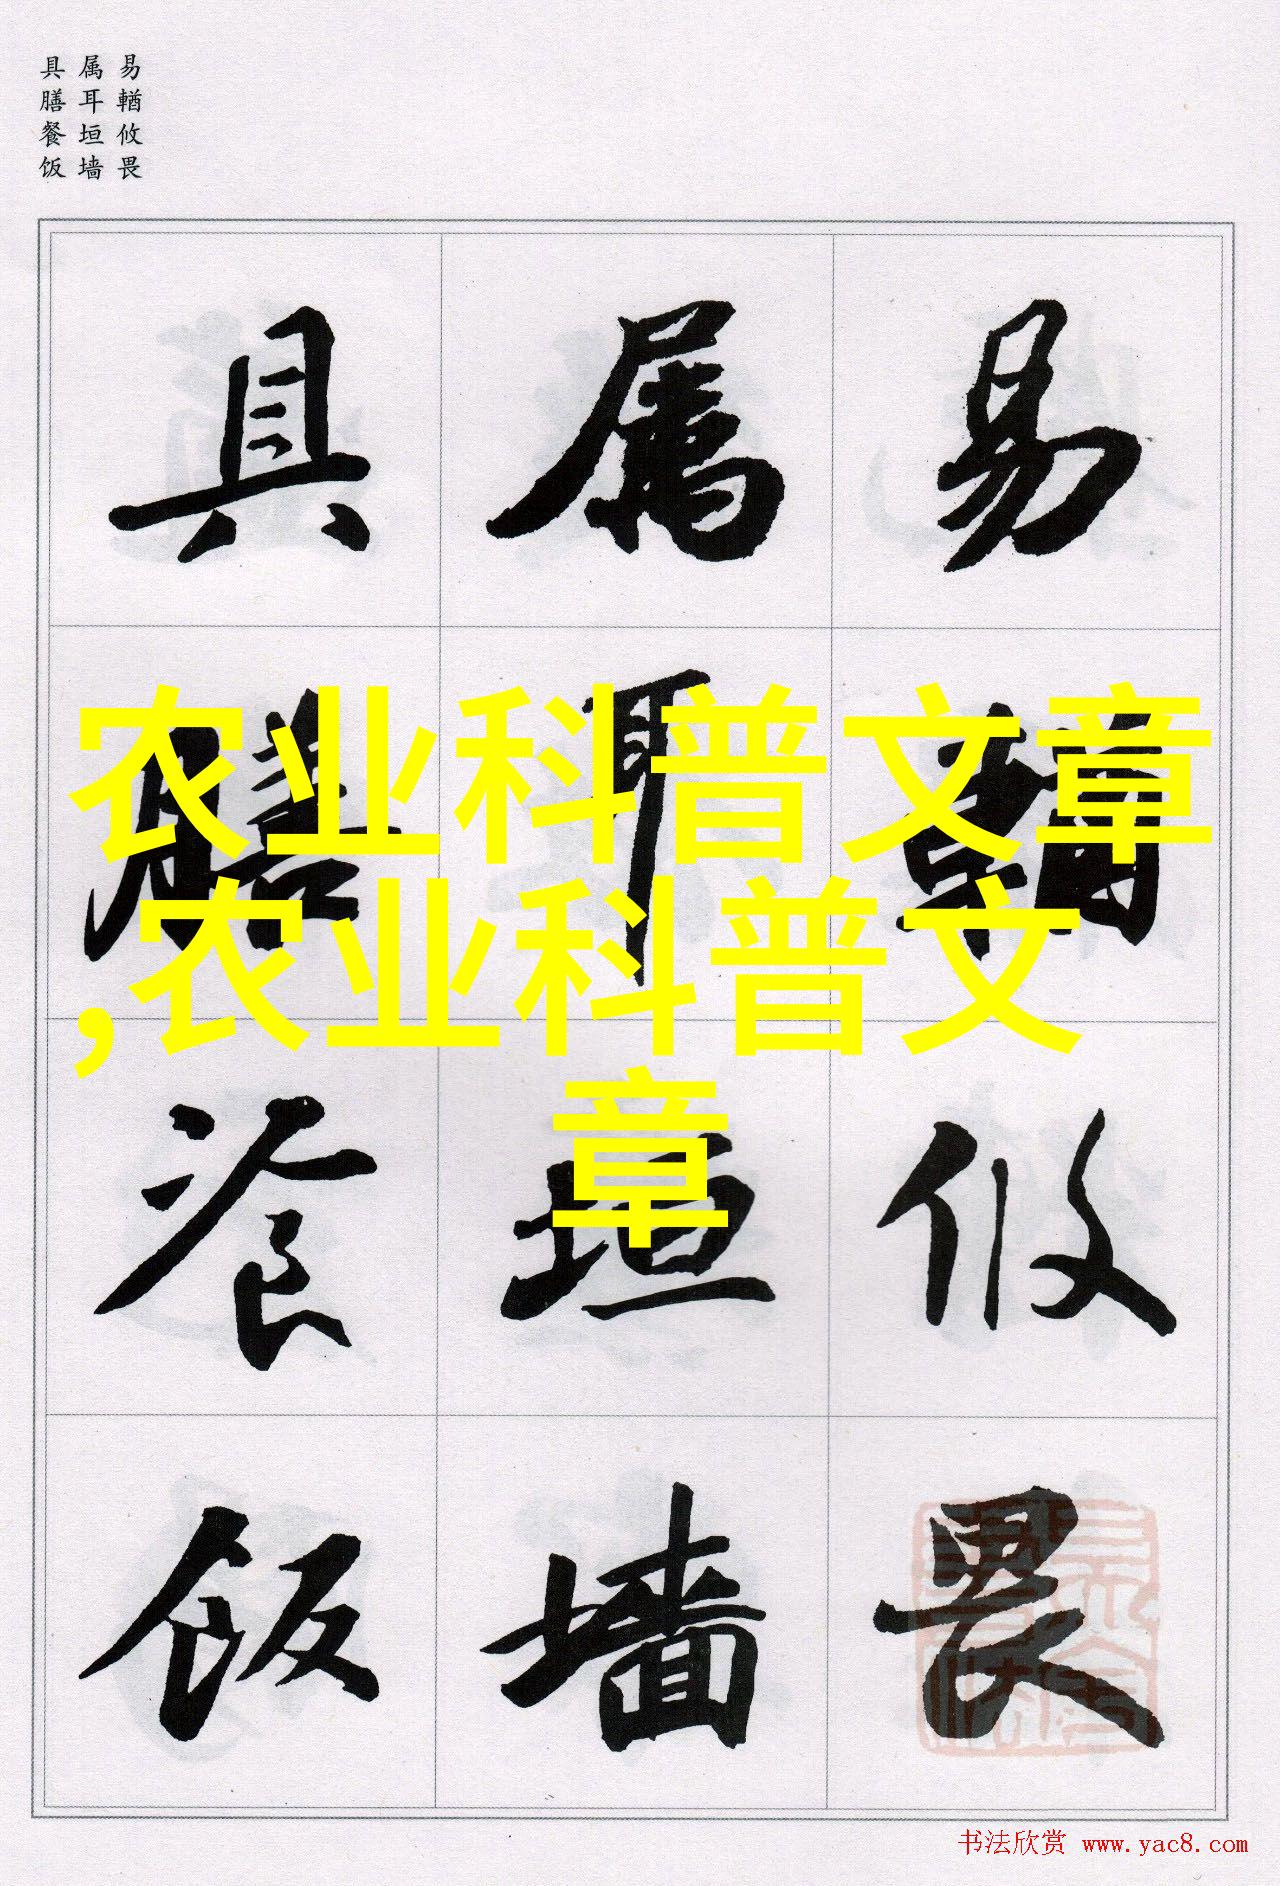 易輶攸畏
属耳垣墙
具膳餐饭
易輶攸畏
属耳垣墙
具膳飡饭
农业科普文章
,农业科普文
章
书法欣赏 www.yac8.com